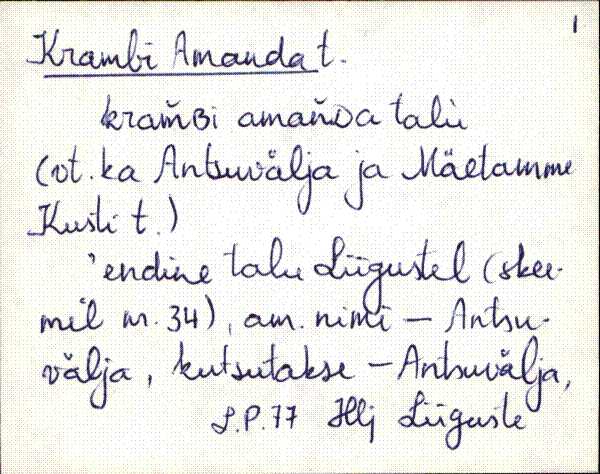 1
Krambi Amanda t.
kram̆ʙi aman̆ᴅa talu
(vt. ka Antsuvälja ja Mäetamme
Kusti t.)
'endine talu Liigustel (skee-
mil nr. 34), am. nimi – Antsu-
välja, kutsutakse – Antsuvälja,
L.P.77 Hlj Liiguste